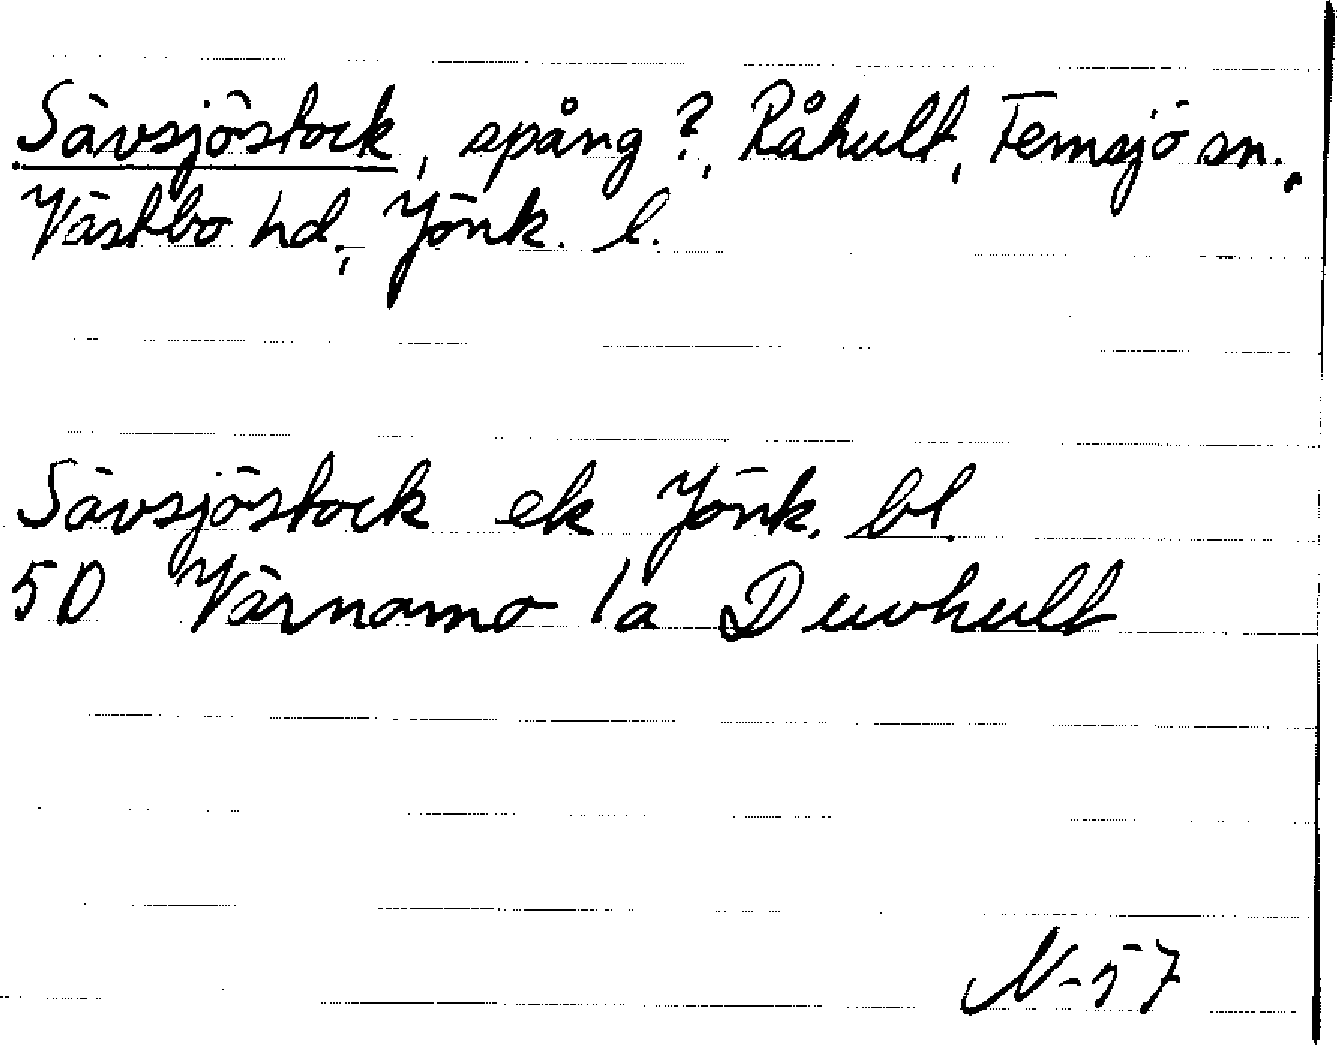 Sävsjöstock, spång?, Råhult, Femsjö sn.,
Västbo hd., Jönk. l.
Sävsjöstock ek Jönk. bl.
5D Värnamo 1a Duvhult
N-57